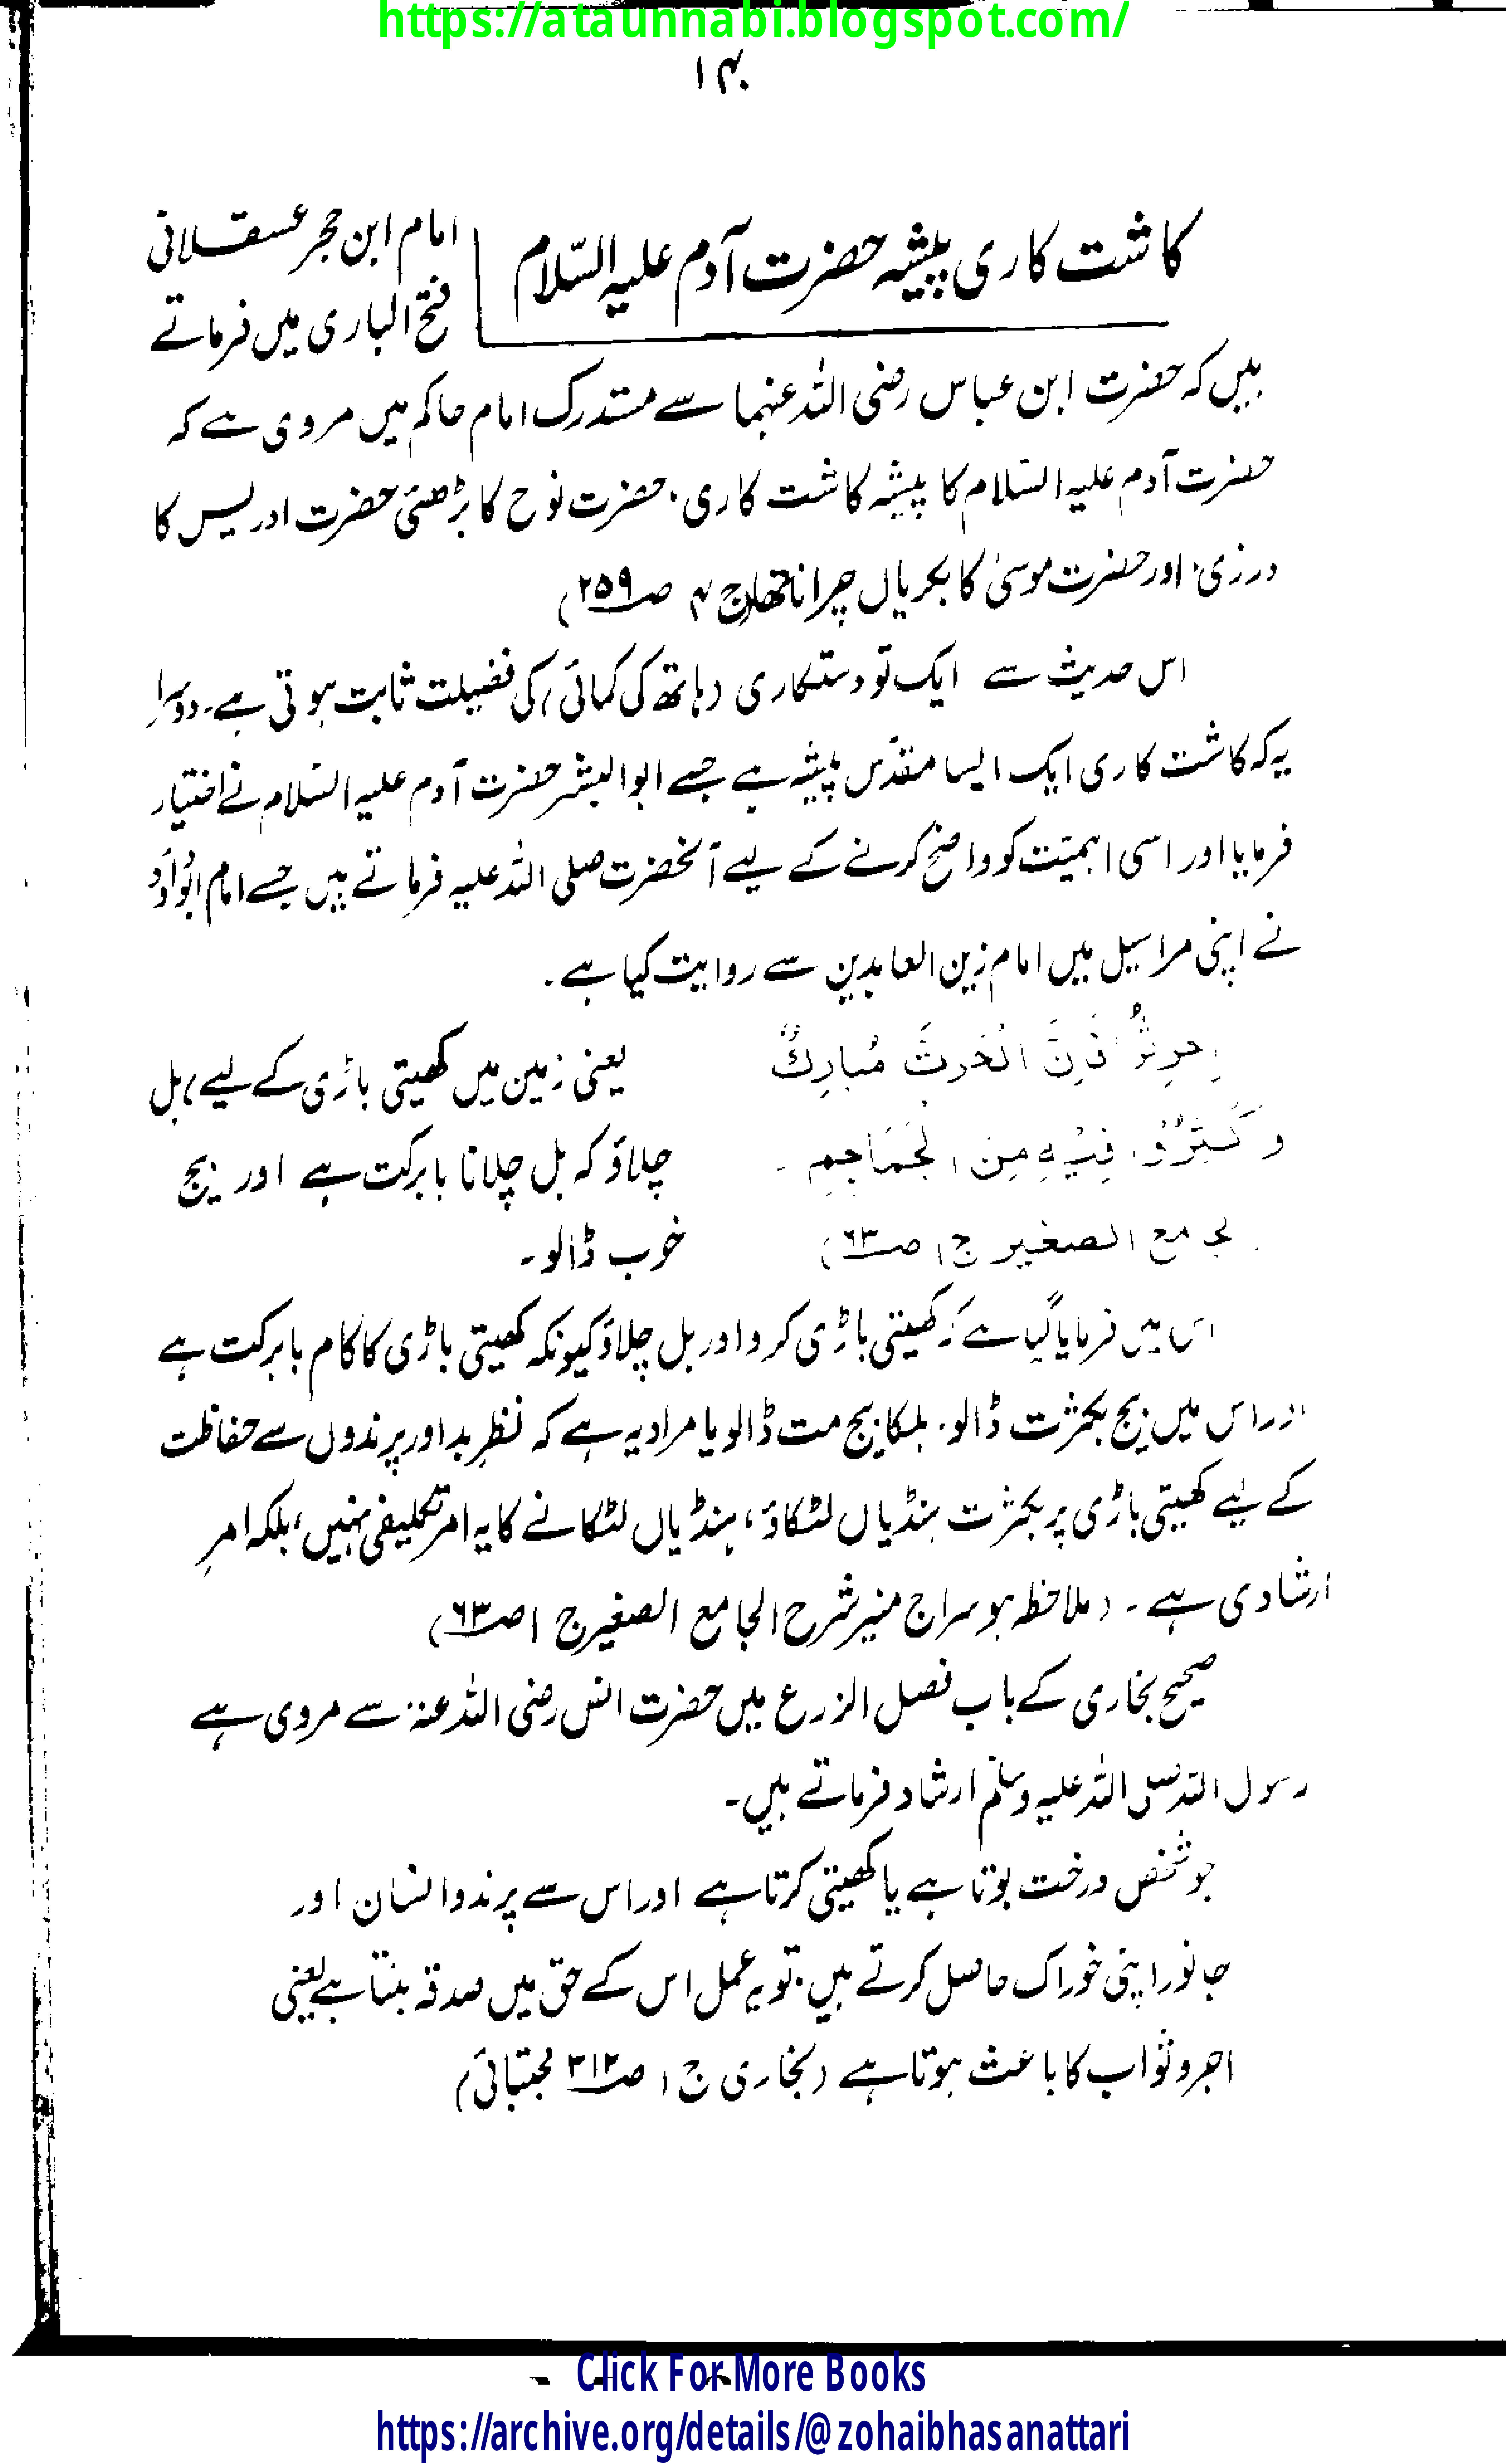 https://ataunnabi.blogspot.com/
۱۴۰
کاشت کاری پیشہ حضرت آدم علیہ السّلام
امام ابن حجر عسقلانی
فتح الباری میں فرماتے
ہیں کہ حضرت ابن عباس رضی اللہ عنہما سے مستدرک امام حاکم میں مروی ہے کہ
حضرت آدم علیہ السّلام کا پیشہ کاشت کاری، حضرت نوح کا بڑھئی حضرت ادریس کا
درزی، اور حضرت موسیٰ کا بکریاں چرانا تھا (ج ۴ صـ۲۵۹)
اس حدیث سے ایک تو دستکاری (ہاتھ کی کمائی) کی فضیلت ثابت ہوتی ہے۔ دوسرا
یہ کہ کاشت کاری ایک ایسا مقدّس پیشہ ہے جسے ابو البشر حضرت آدم علیہ السّلام نے اختیار
فرمایا اور اسی اہمیّت کو واضح کرنے کے لیے آنحضرت صلی اللہ علیہ فرماتے ہیں جسے امام ابوداؤد
نے اپنی مراسیل میں امام زین العابدین سے روایت کیا ہے۔
اِحرِثُوْا فَاِنَّ الْحَرثَ مُبارِكٌ
یعنی زمین میں کھیتی باڑی کے لیے ہل
وَكَثِّرُوْا فِيْهِ مِنَ الْجَمَاجِمِ ۔
چلاؤ کہ ہل چلانا بابرکت ہے اور بیج
لجامع الصغير ج ۱ صـ۶۳)
خوب ڈالو۔
اس میں فرمایا گیا ہے کہ کھیتی باڑی کرو اور ہل چلاؤ کیونکہ کھیتی باڑی کا کام بابرکت ہے
اور اس میں بیج بکثرت ڈالو۔ ہلکا بیج مت ڈالو یا مراد یہ ہے کہ نظرِ بد اور پرندوں سے حفاظت
کے لیے کھیتی باڑی پر بکثرت ہنڈیاں لٹکاؤ، ہنڈیاں لٹکانے کا یہ امر تکلیفی نہیں، بلکہ امرِ
ارشادی ہے۔ (ملاحظہ ہو سراج منیر شرح الجامع الصغیر ج ۱ صـ۶۳)
صحیح بخاری کے باب فضل الزرع میں حضرت انس رضی اللہ عنہ سے مروی ہے
رسول اللہ صلی اللہ علیہ وسلّم ارشاد فرماتے ہیں۔
جو شخص درخت بوتا ہے یا کھیتی کرتا ہے اور اس سے پرند و انسان اور
جانور اپنی خوراک حاصل کرتے ہیں، تو یہ عمل اس کے حق میں صدقہ بنتا ہے یعنی
اجر و ثواب کا باعث ہوتا ہے (بخاری ج ۱ صـ۳۱۲ مجتبائی)
Click For More Books
https://archive.org/details/@zohaibhasanattari